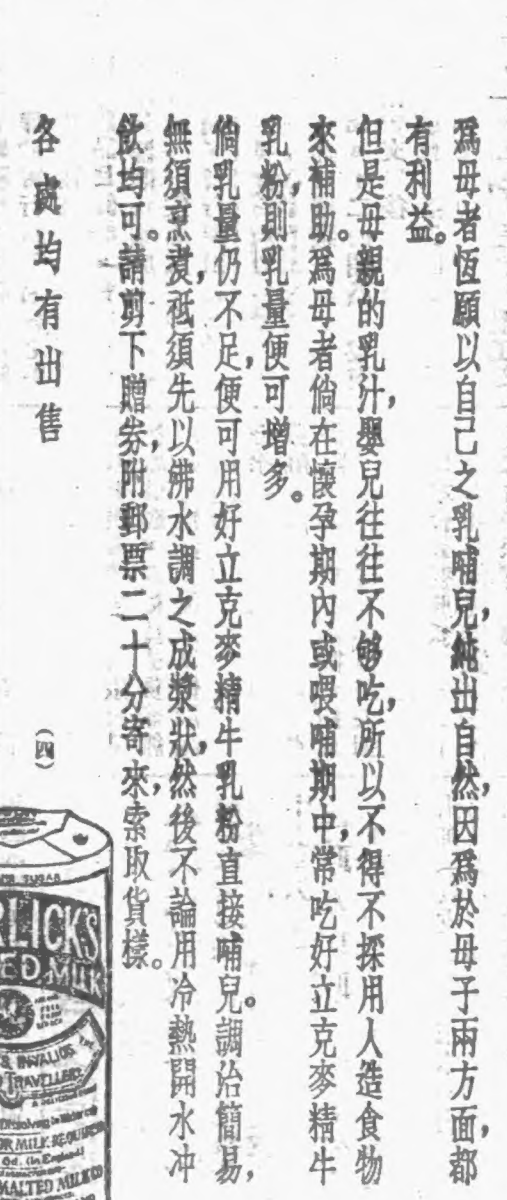 爲母者恆願以自己之乳哺兒，純出自然，因爲於母子兩方面，都
有利益。
但是母親的乳汁，嬰兒往往不够吃，所以不得不採用人造食物
來補助。爲母者倘在懷孕期內或喂哺期中，常吃好立克麥精牛
乳粉，則乳量便可增多。
倘乳量仍不足，便可用好立克麥精牛乳粉直接哺兒。調治簡易，
無須烹煑，祗須先以沸水調之成漿狀，然後不論用冷熱開水冲
飲均可。請剪下贈券，附郵票二十分寄來，索取貨樣。
各處均有出售
（四）
RLICK'S
ED MILK
INVALIDS
TRAVELLERS
OR MILK REQUIRED
(In England)
MALTED MILK CO